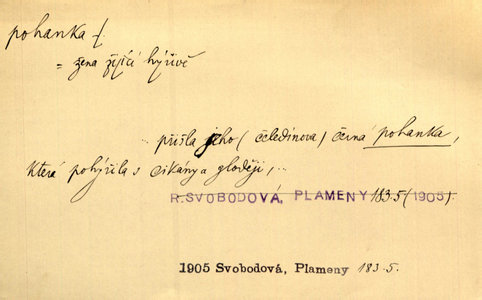 pohanka f.
= žena žijící hýřivě
.. přišla jeho (čeledínova) černá pohanka,
která pohýřila s cikány a zloději, ..
R. SVOBODOVÁ, PLAMENY 183.5 (1905).
1905 Svobodová, Plameny 183.5.